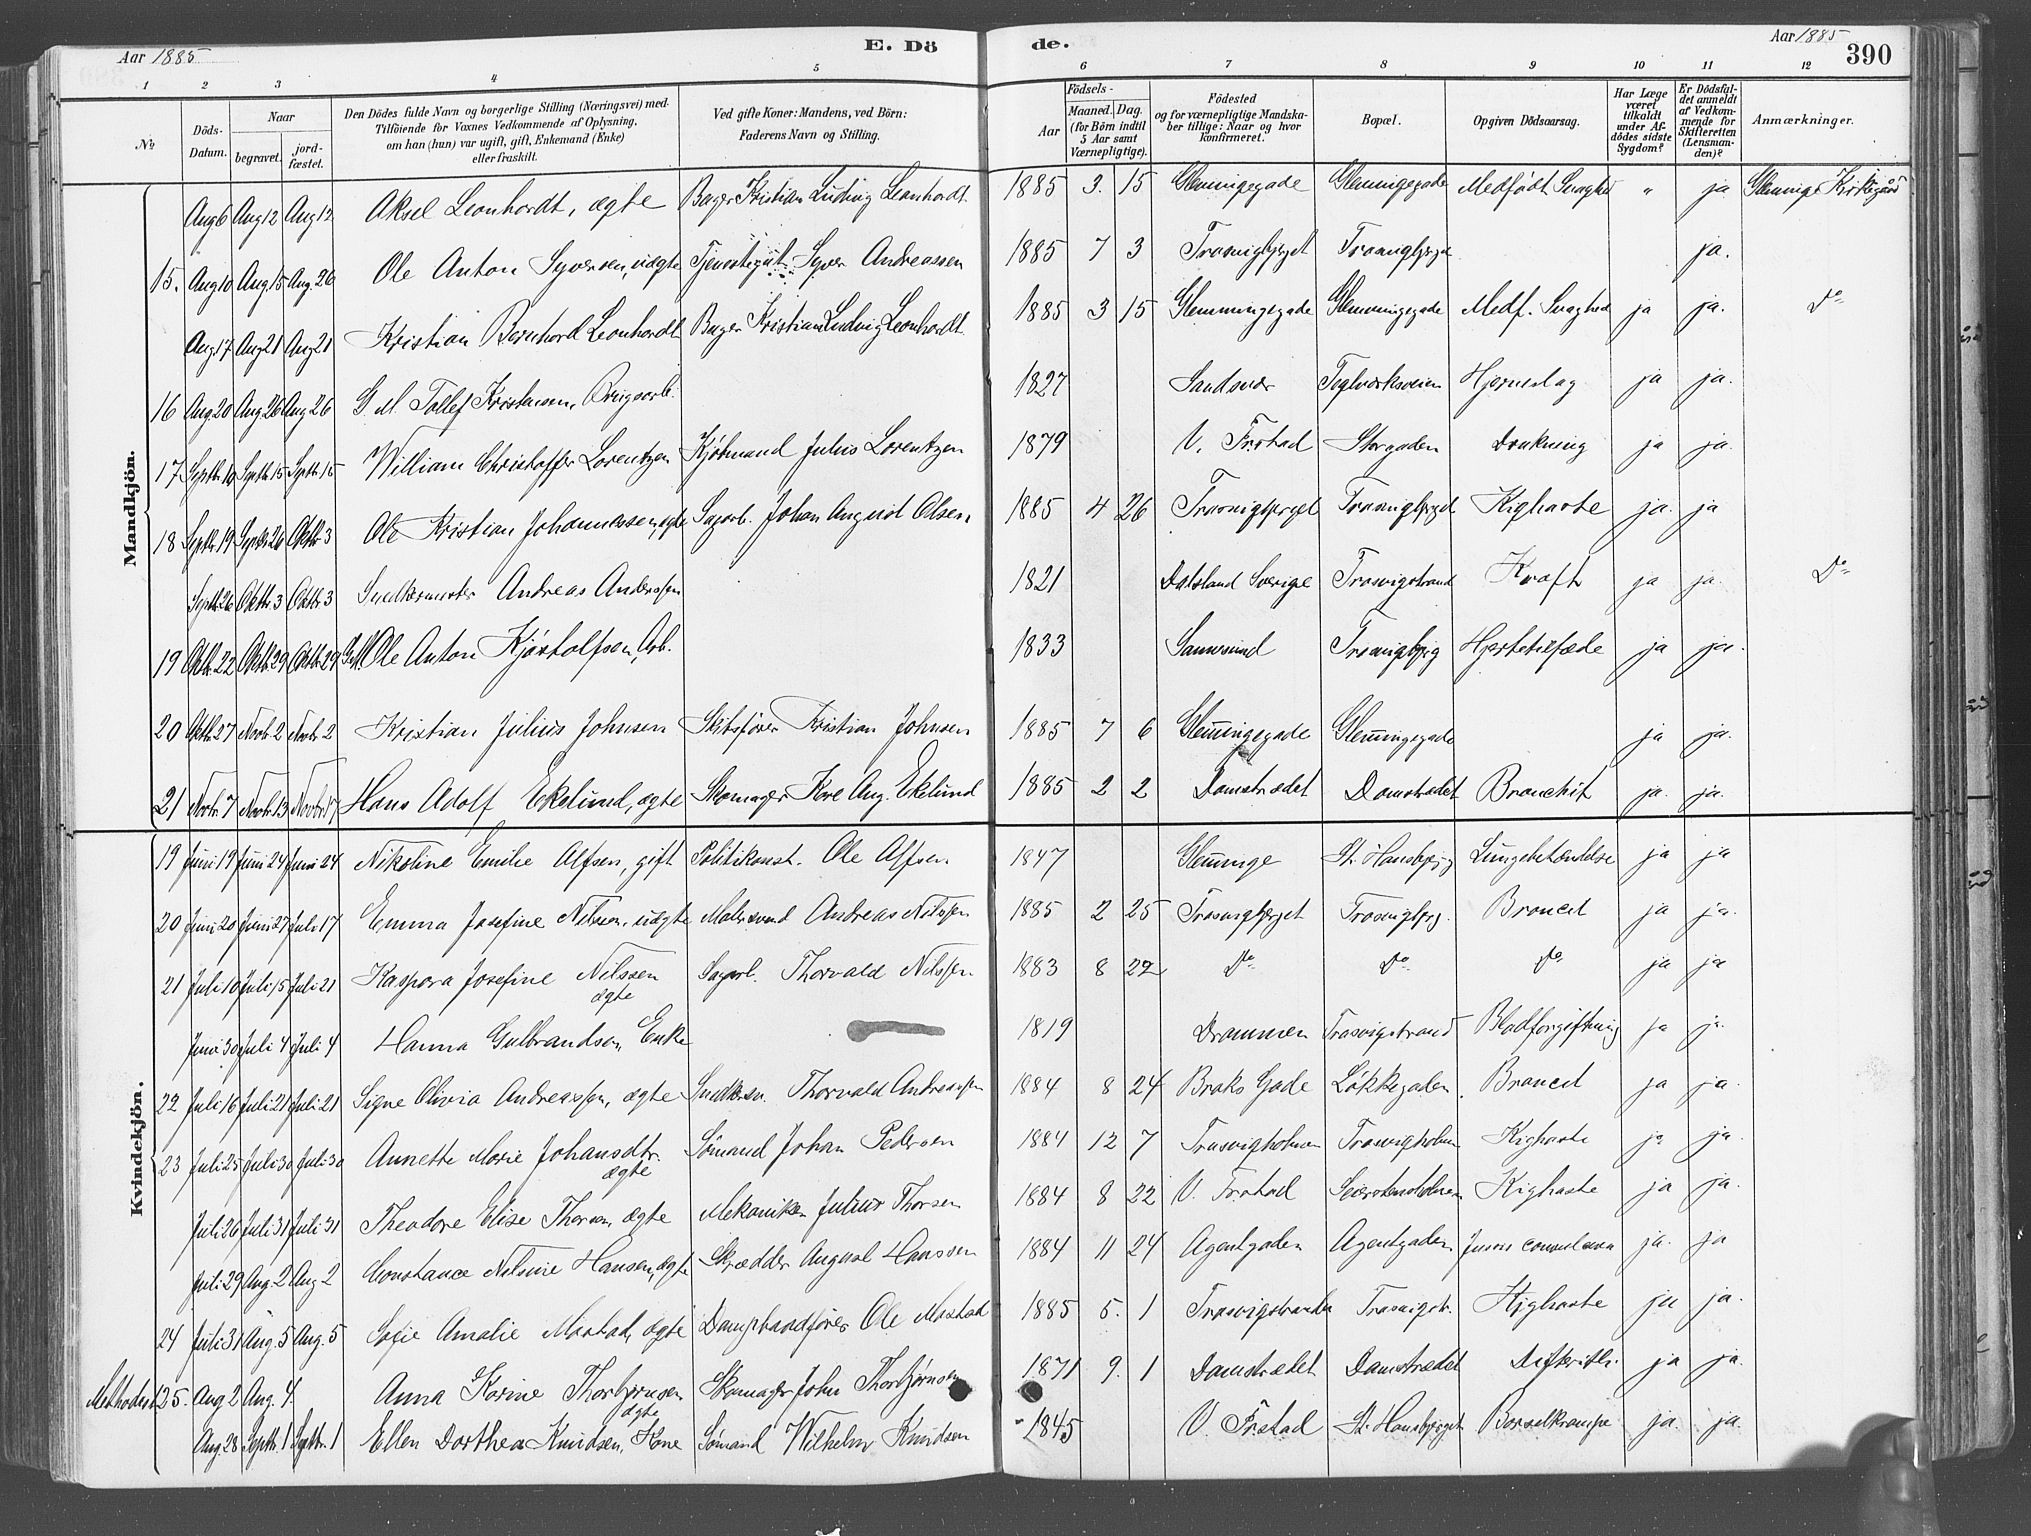 Aar 1885 E. Dö de. Aar 1885 390
1 2 3 4 5 6 7 8 9 10 11 12
№ Döds-Datum. Naar begravet. jordfæstet. Den Dödes fulde Navn og borgerlige Stilling (Næringsvei) med Tilföiende for Voxnes Vedkommende af Oplysning, om han (hun) var ugift, gift, Enkemand (Enke) eller fraskilt. Ved gifte Koner: Mandens, ved Börn: Faderens Navn og Stilling. Aar Födsels- Maaned. Dag. (for Börn indtil 5 Aar samt Værnepligtige). Födested og for værnepligtige Mandskaber tillige: Naar og hvor konfirmeret. Bopæl. Opgiven Dödsaarsag. Har Læge været tilkaldt under Afdödes sidste Sygdom? Er Dödsfaldet anmeldt af Vedkommende for Skifteretten (Lensmanden)? Anmærkninger.
Mandkjön.
Aug 6 Aug 12 Aug 12 Aksel Leonhardt, ægte Bager Kristian Ludvig Leonhardt 1885 3. 15 Glemmingegade Glemmingegade Medfödt Svaghed " ja Glemminge Kirkegård
15. Aug 10 Aug. 15 Aug. 26 Ole Anton Syversen, uægte Tjenestegut Syver Andreassen 1885 7 3 Trosvigbjerget Trosvigbjerget ja.
Aug 17 Aug 21 Aug 21 Kristian Bernhard Leonhardt Bager Kristian Ludvig Leonhardt 1885 3 15 Glemmingegade Glemmingegade Medf. Svaghed ja ja. Do
16 Aug 20 Aug 26 Aug 26 G. M. Tollef Kristensen, Brugsarb. 1827 Sandsvær Teglverksveien Hjerneslag ja ja.
17 Septbr 10 Septbr 15 Septbr 15 William Christoffer Lorentzen Kjöbmand Julius Lorentzen 1879 V. Frstad Storgaden Drukning ja ja.
18 Septbr 19 Septbr 26 Oktbr 3 Ole Kristian Johannessen, ægte Sagarb. Johan August Olsen 1885 4 26 Trosvigbjerget Trosvigbjerget Kighoste ja. ja
Septbr 26 Oktbr 3 Oktbr 3 Snedkermester Andreas Anderssen 1821 Dalsland Sverige Trosvigstrand Kræft ja ja. Do
19 Oktbr. 22 Oktbr 29 Oktbr 29 Gift Ole Anton Kjøstolfsen, Arb. 1833 Sannesund Trosvigbjerg Hjertetilfælde ja ja.
20 Oktbr 27 Novbr 2 Novbr 2 Kristian Julius Johnsen Skibsfører Kristian Johnsen 1885 7 6 Glemingegade Glemingegade ja ja.
21 Novbr. 7 Novbr 13 Novbr 17 Hans Adolf Ekelund, ægte Skomager Kore Aug. Ekelund 1885 2 2 Damstrædet Damstrædet Bronchit ja. ja.
Kvindekjön.
19 Juni 19 Juni 24 Juni 24 Nikoline Emilie Alfsen, gift Politikonst. Ole Alfsen 1847 Gleminge St. Hansbjerg Lungebetændelse ja ja
20 Juni 20 Juni 27 Juli 17 Emma Josefine Nilsen, uægte Malersvend Andreas Nilssen 1885 2 25 Trosvigbjerget Trosvigbjerg. Broncit ja ja.
21 Juli 10 Juli 15 Juli 21 Kaspara Josefine Nilssen ægte Sagarb. Thorvald Nilssen 1883 8 22 Do Do Do ja ja
Juni 30 Juli 4 Juli 4 Hanna Gulbrandsen, Enke 1819 Drammen Trosvigstrand Blodforgiftning ja ja.
22 Juli 16 Juli 21 Juli 21 Signe Olivia Andreassen, ægte Snedkersv. Thorvald Andreassen 1884 8 24 Broks Gade Løkkegaden Broncit ja ja.
23 Juli 25 Juli 30 Juli 30 Annette Marie Johansdtr. ægte Sømand Johan Pedersen 1884 12 7 Trosvigholmen Trosvigholmen Kighoste ja ja.
Juli 26 Juli 31 Juli 31 Theodore Elise Thorsen, ægte Mekaniker Julius Thorsen 1884 8 22 V. Frstad Kighoste ja ja.
Juli 29 Aug. 2 Aug 2 Constance Nilsine Hansen, ægte Skrædder August Hanssen 1884 11 24 Agentgaden Agentgaden ja. ja
24 Juli 31 Aug. 5 Aug. 5 Sofie Amalie Mostad, ægte Dampbaadfører Ole Mostad 1885 5. 1 Trosvigstranda Trosvigstr. Kighoste ja ja.
Methodist 25. Aug 2 Aug. 4. Anna Karine Thorbjørnsen ægte Skomager John Thorbjørnsen 1871 9. 1 Damstrædet Damstrædet Difterit. ja ja.
Aug. 28 Septbr. 1 Septbr 1 Ellen Dorthea Knudsen, Kone Sømand Wilhelm Knudsen 1845 V. Frstad St. Hansbjerget Barselkrampe ja. ja.